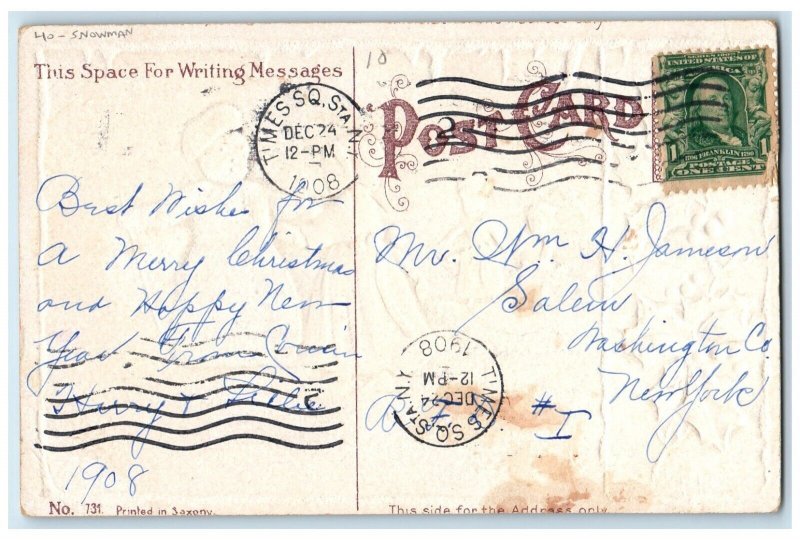 40 - SNOWMAN
This Space For Writing Messages
10
POST CARD
TIMES SQ. STA. N.Y.
DEC 24
12-PM
1908
SERIES 1902
UNITED STATES OF
AMERICA
1706 FRANKLIN 1790
1 POSTAGE 1
ONE CENT
2
Best Wishes for
A Merry Christmas
and Happy New
Year From Cousin
Harry &
1908
Mr. Wm H. Jameson
Salem
Washington Co
New York
# 1
TIMES SQ. STA. N.Y.
DEC 24
12-PM
1908
2
No. 731. Printed in Saxony.
This side for the Address only